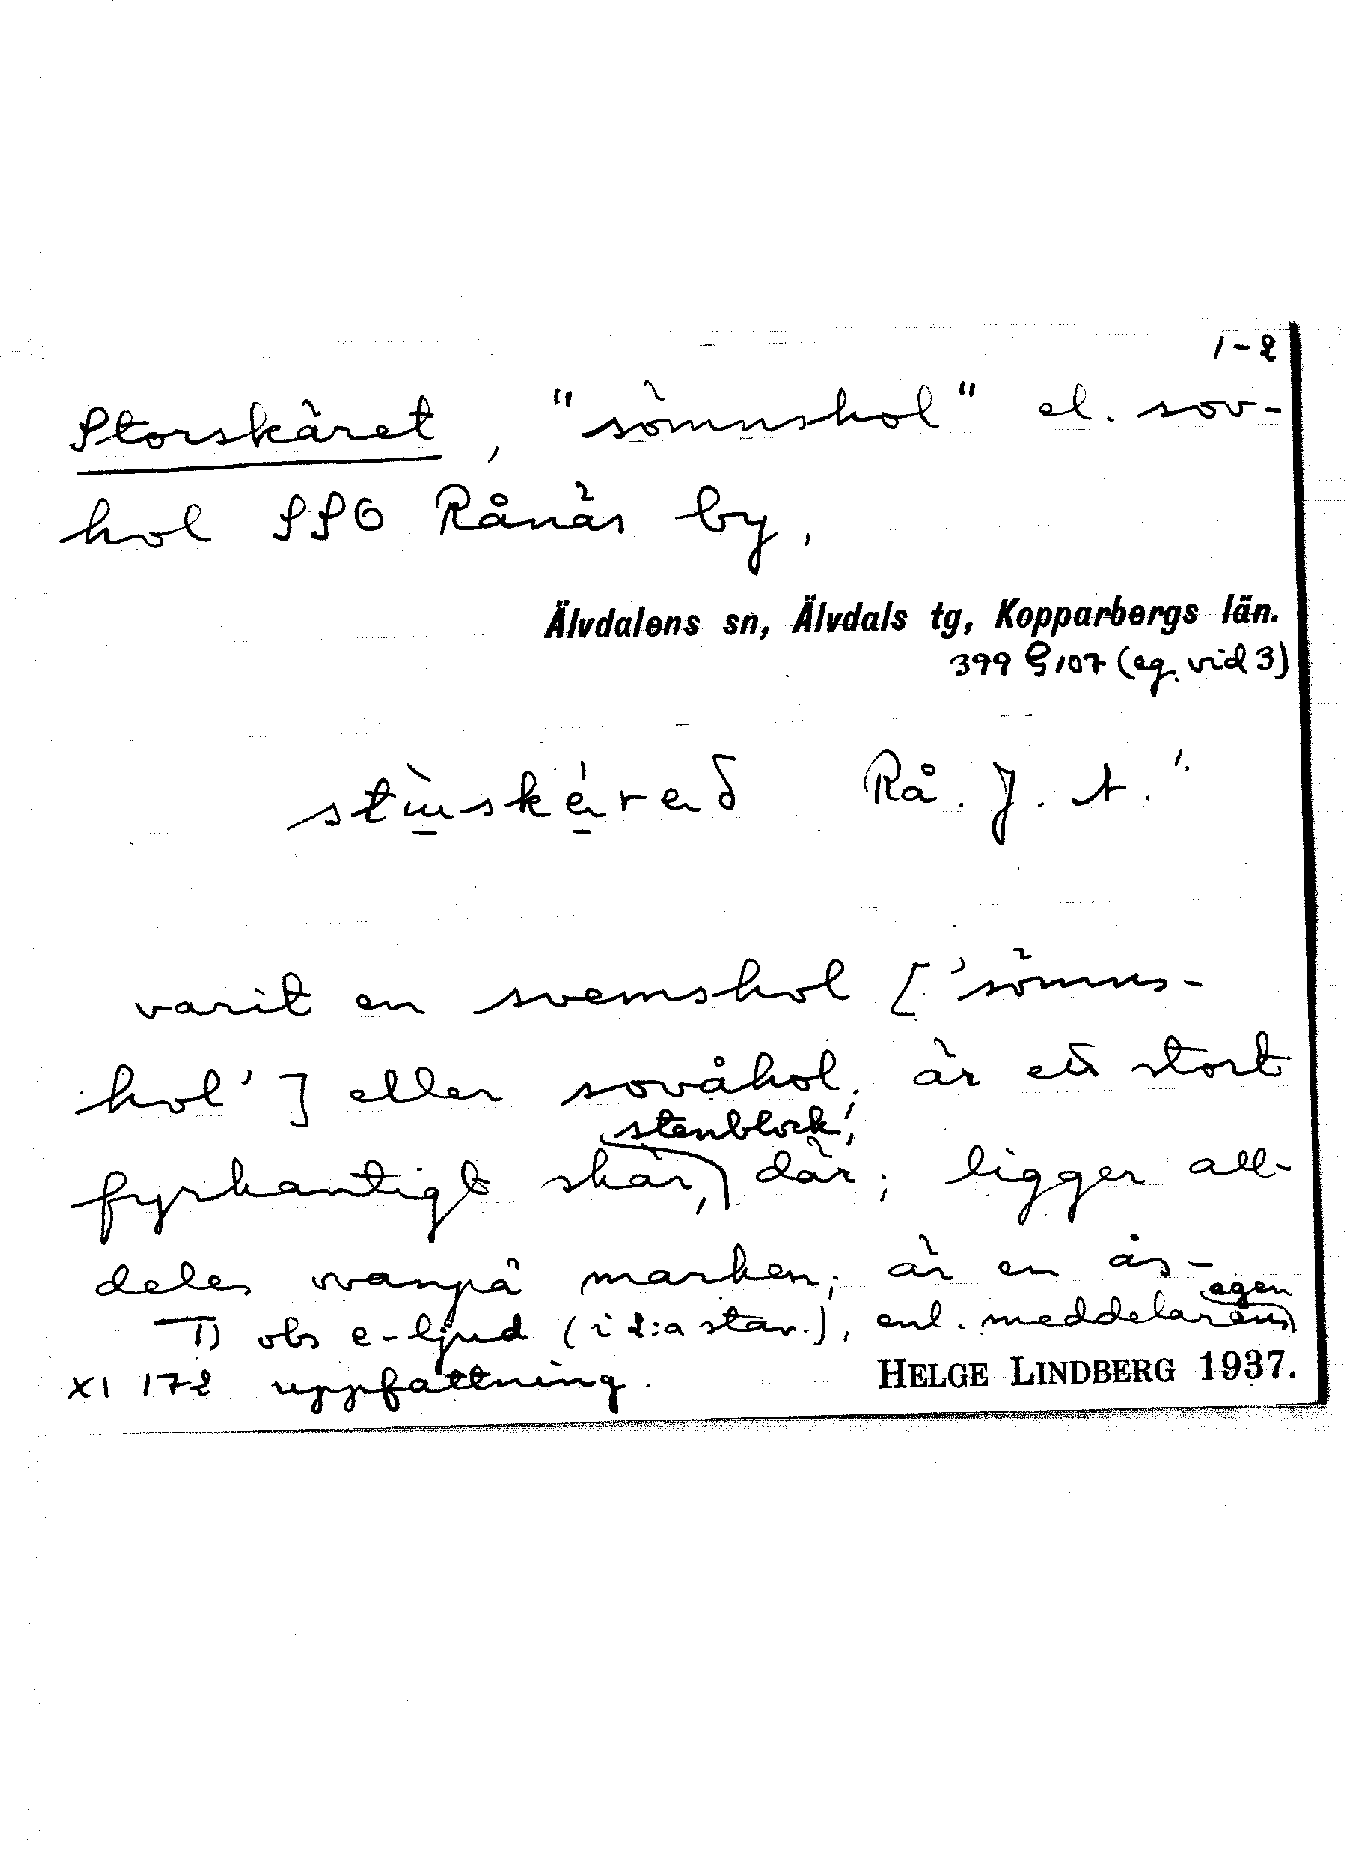 1-2
Storskäret, "sömnshol" el. sov-
hol SSO Rånäs by.
Älvdalens sn, Älvdals tg, Kopparbergs län.
399 § 107 (eg. vid 3)
Rå. J. A.
varit en svemshol ['sömns-
hol'] eller sovåhol; är ett stort
stenblock,
fyrkantigt skär, där; ligger all-
deles ovanpå marken; är en ås-
egen
1) obs e-ljud (i 2:a stav.), enl. meddelarens
XI 172 uppfattning.
HELGE LINDBERG 1937.